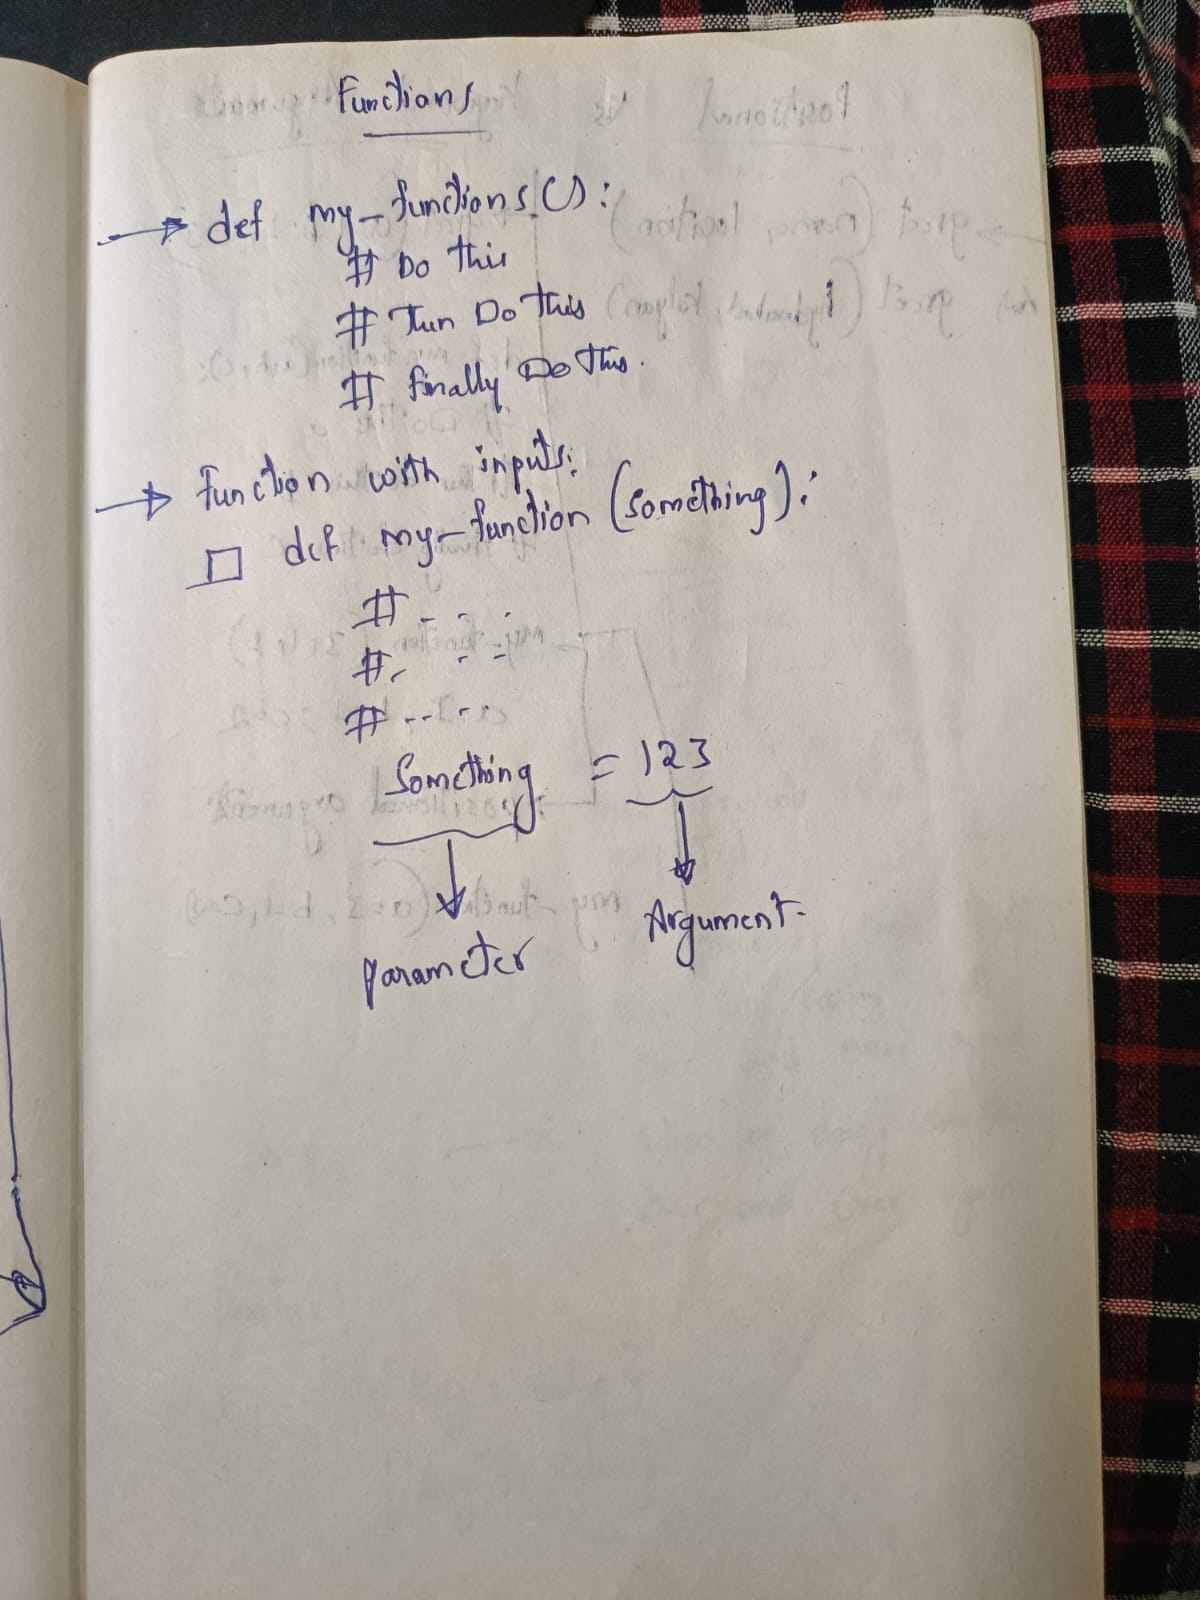 Functions
→ def my-functions():
# Do this
# Then Do this
# finally Do this.
→ function with inputs:
□ def my-function (something):
# - - .
# - - -
# - - - -
Something = 123
Parameter Argument.